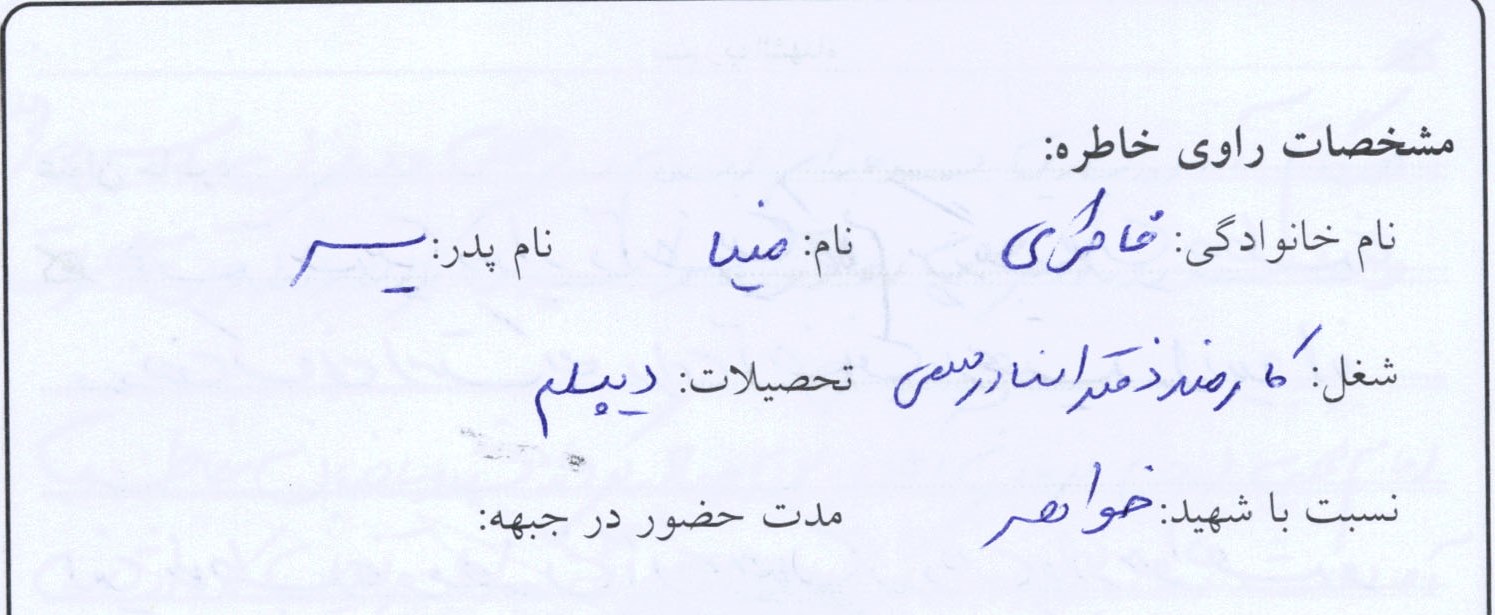 مشخصات راوی خاطره:
نام خانوادگی: نام: نام پدر:
شغل: کارمند دفتر اسناد رسمی تحصیلات: دیپلم
نسبت با شهید: خواهر مدت حضور در جبهه: